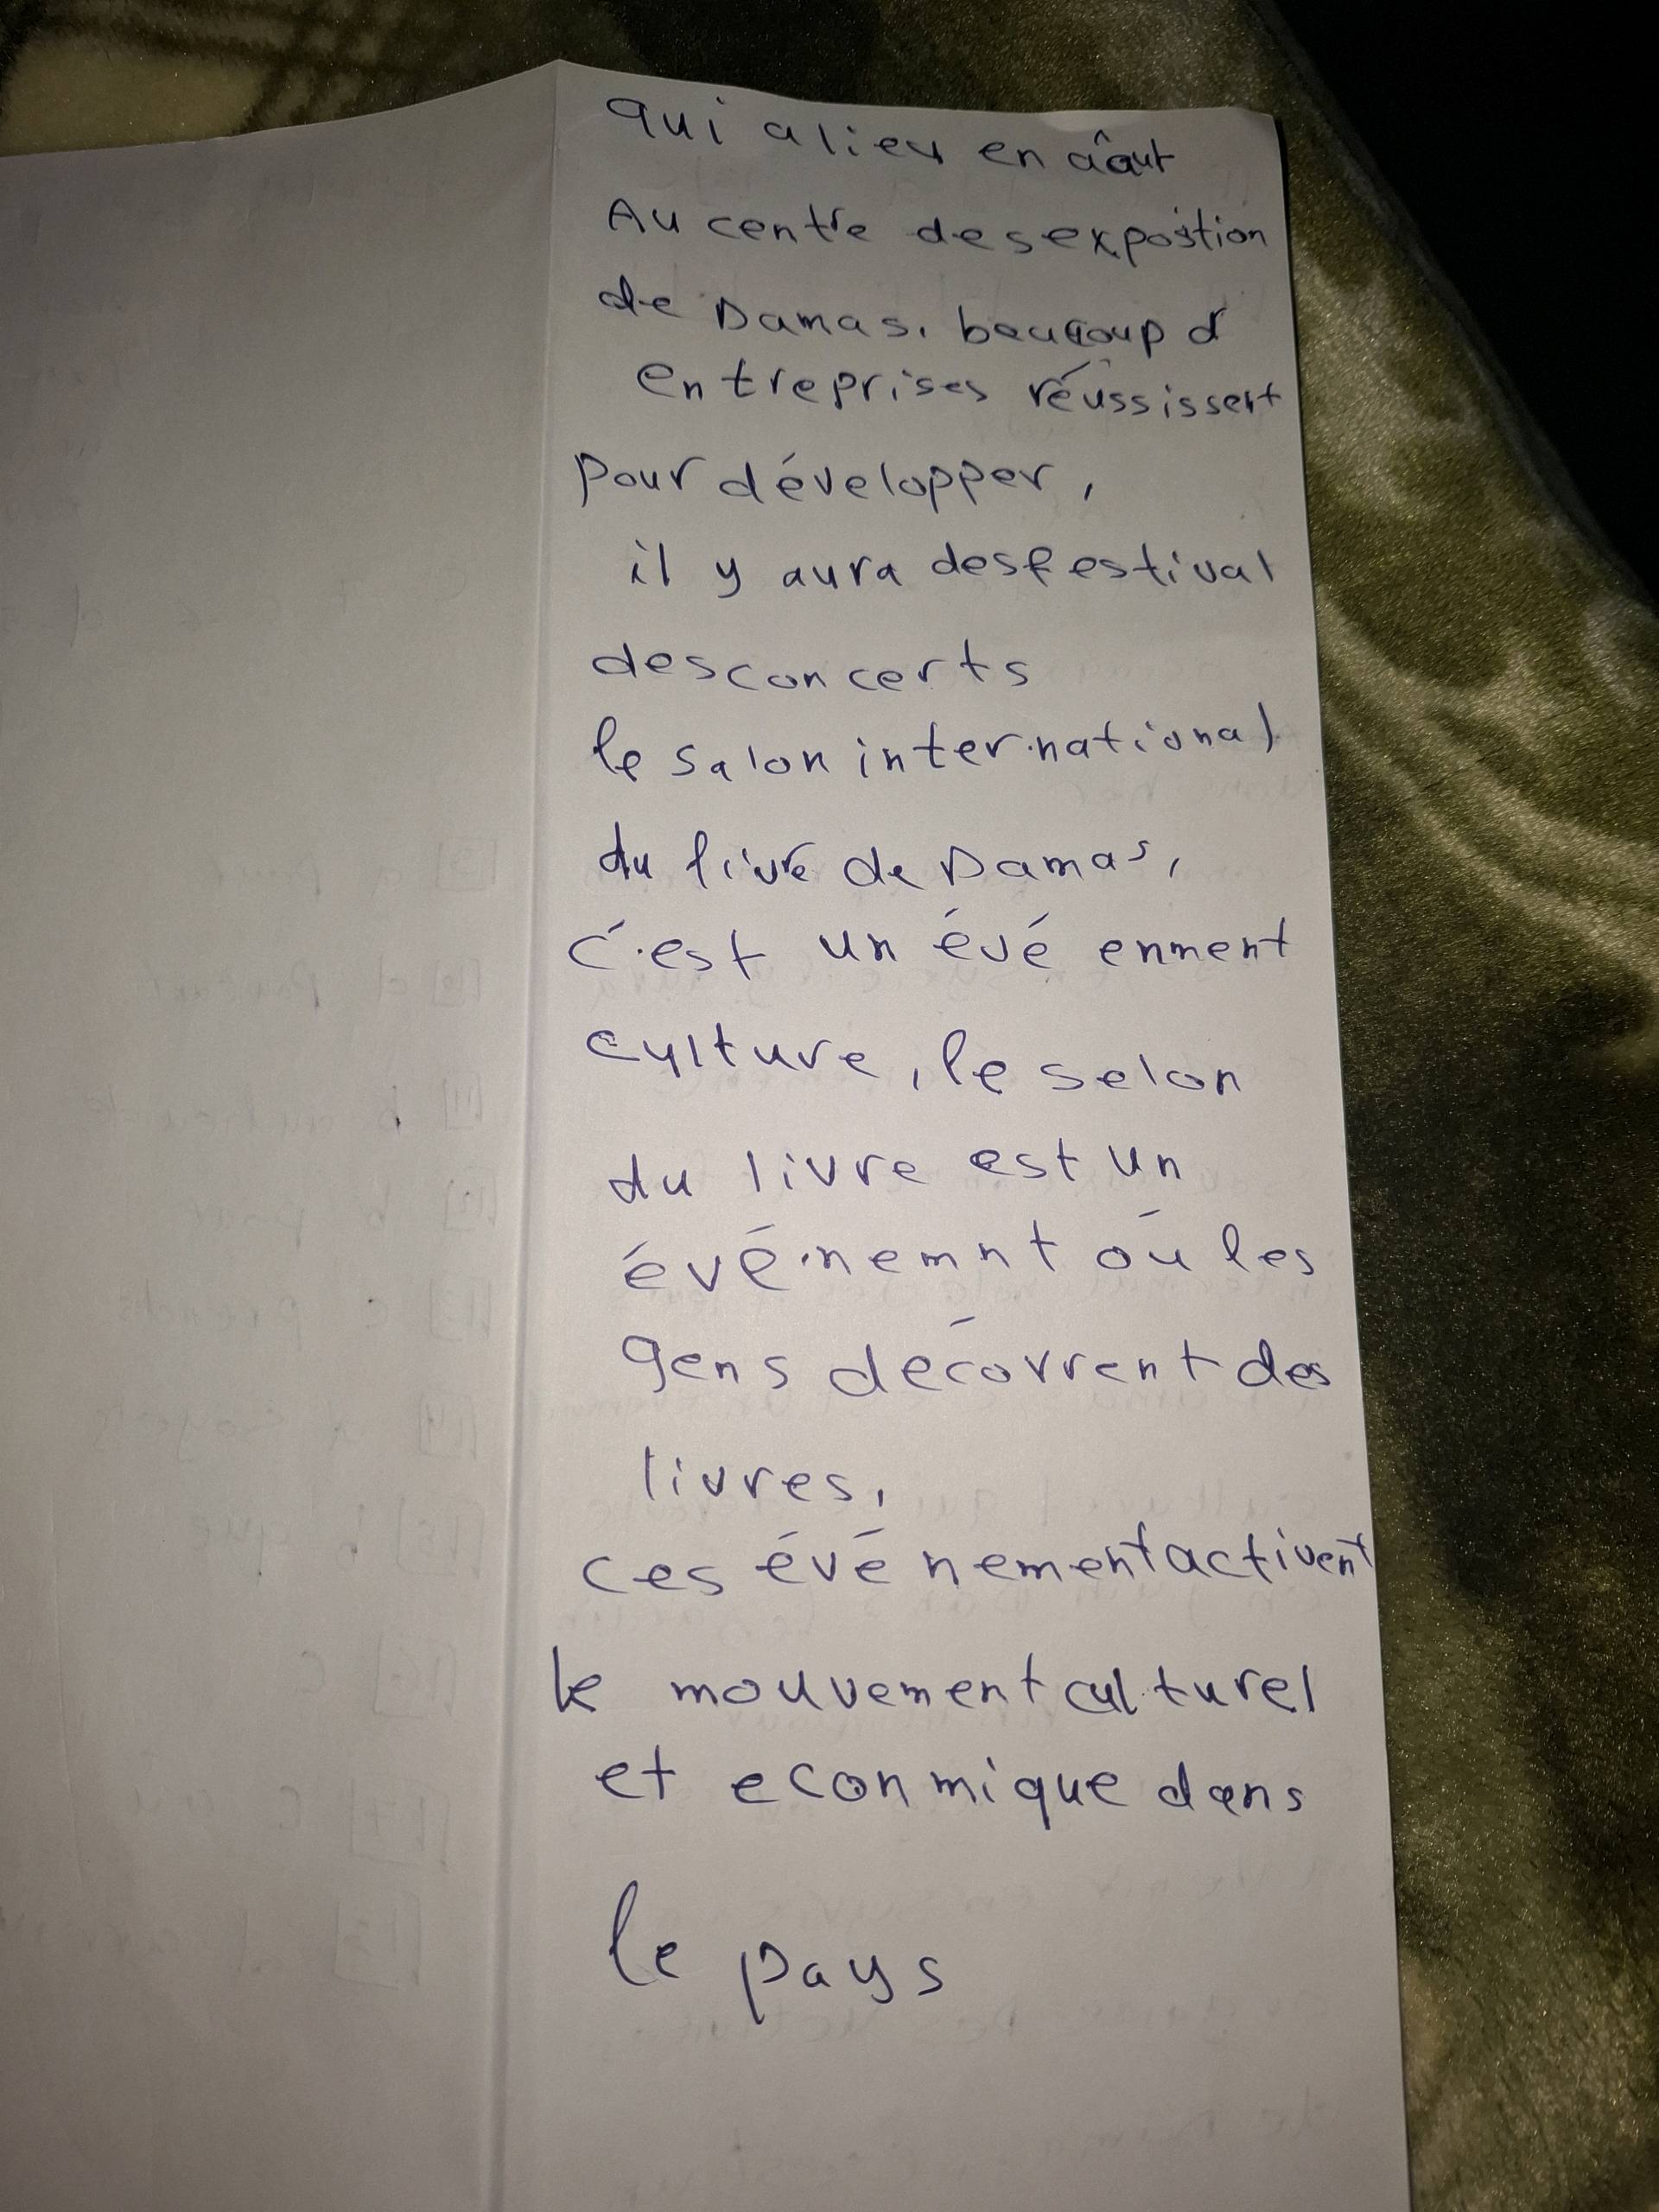 qui a lieu en âout
Au centre des expostion
de Damas. beaucoup d
entreprises réussissent
pour développer,
il y aura des festival
des concerts
le salon international
du livre de Damas,
c'est un évé enment
culture, le selon
du livre est un
événemnt où les
gens décovrent des
livres,
ces événement activent
le mouvement culturel
et econmique dans
le pays